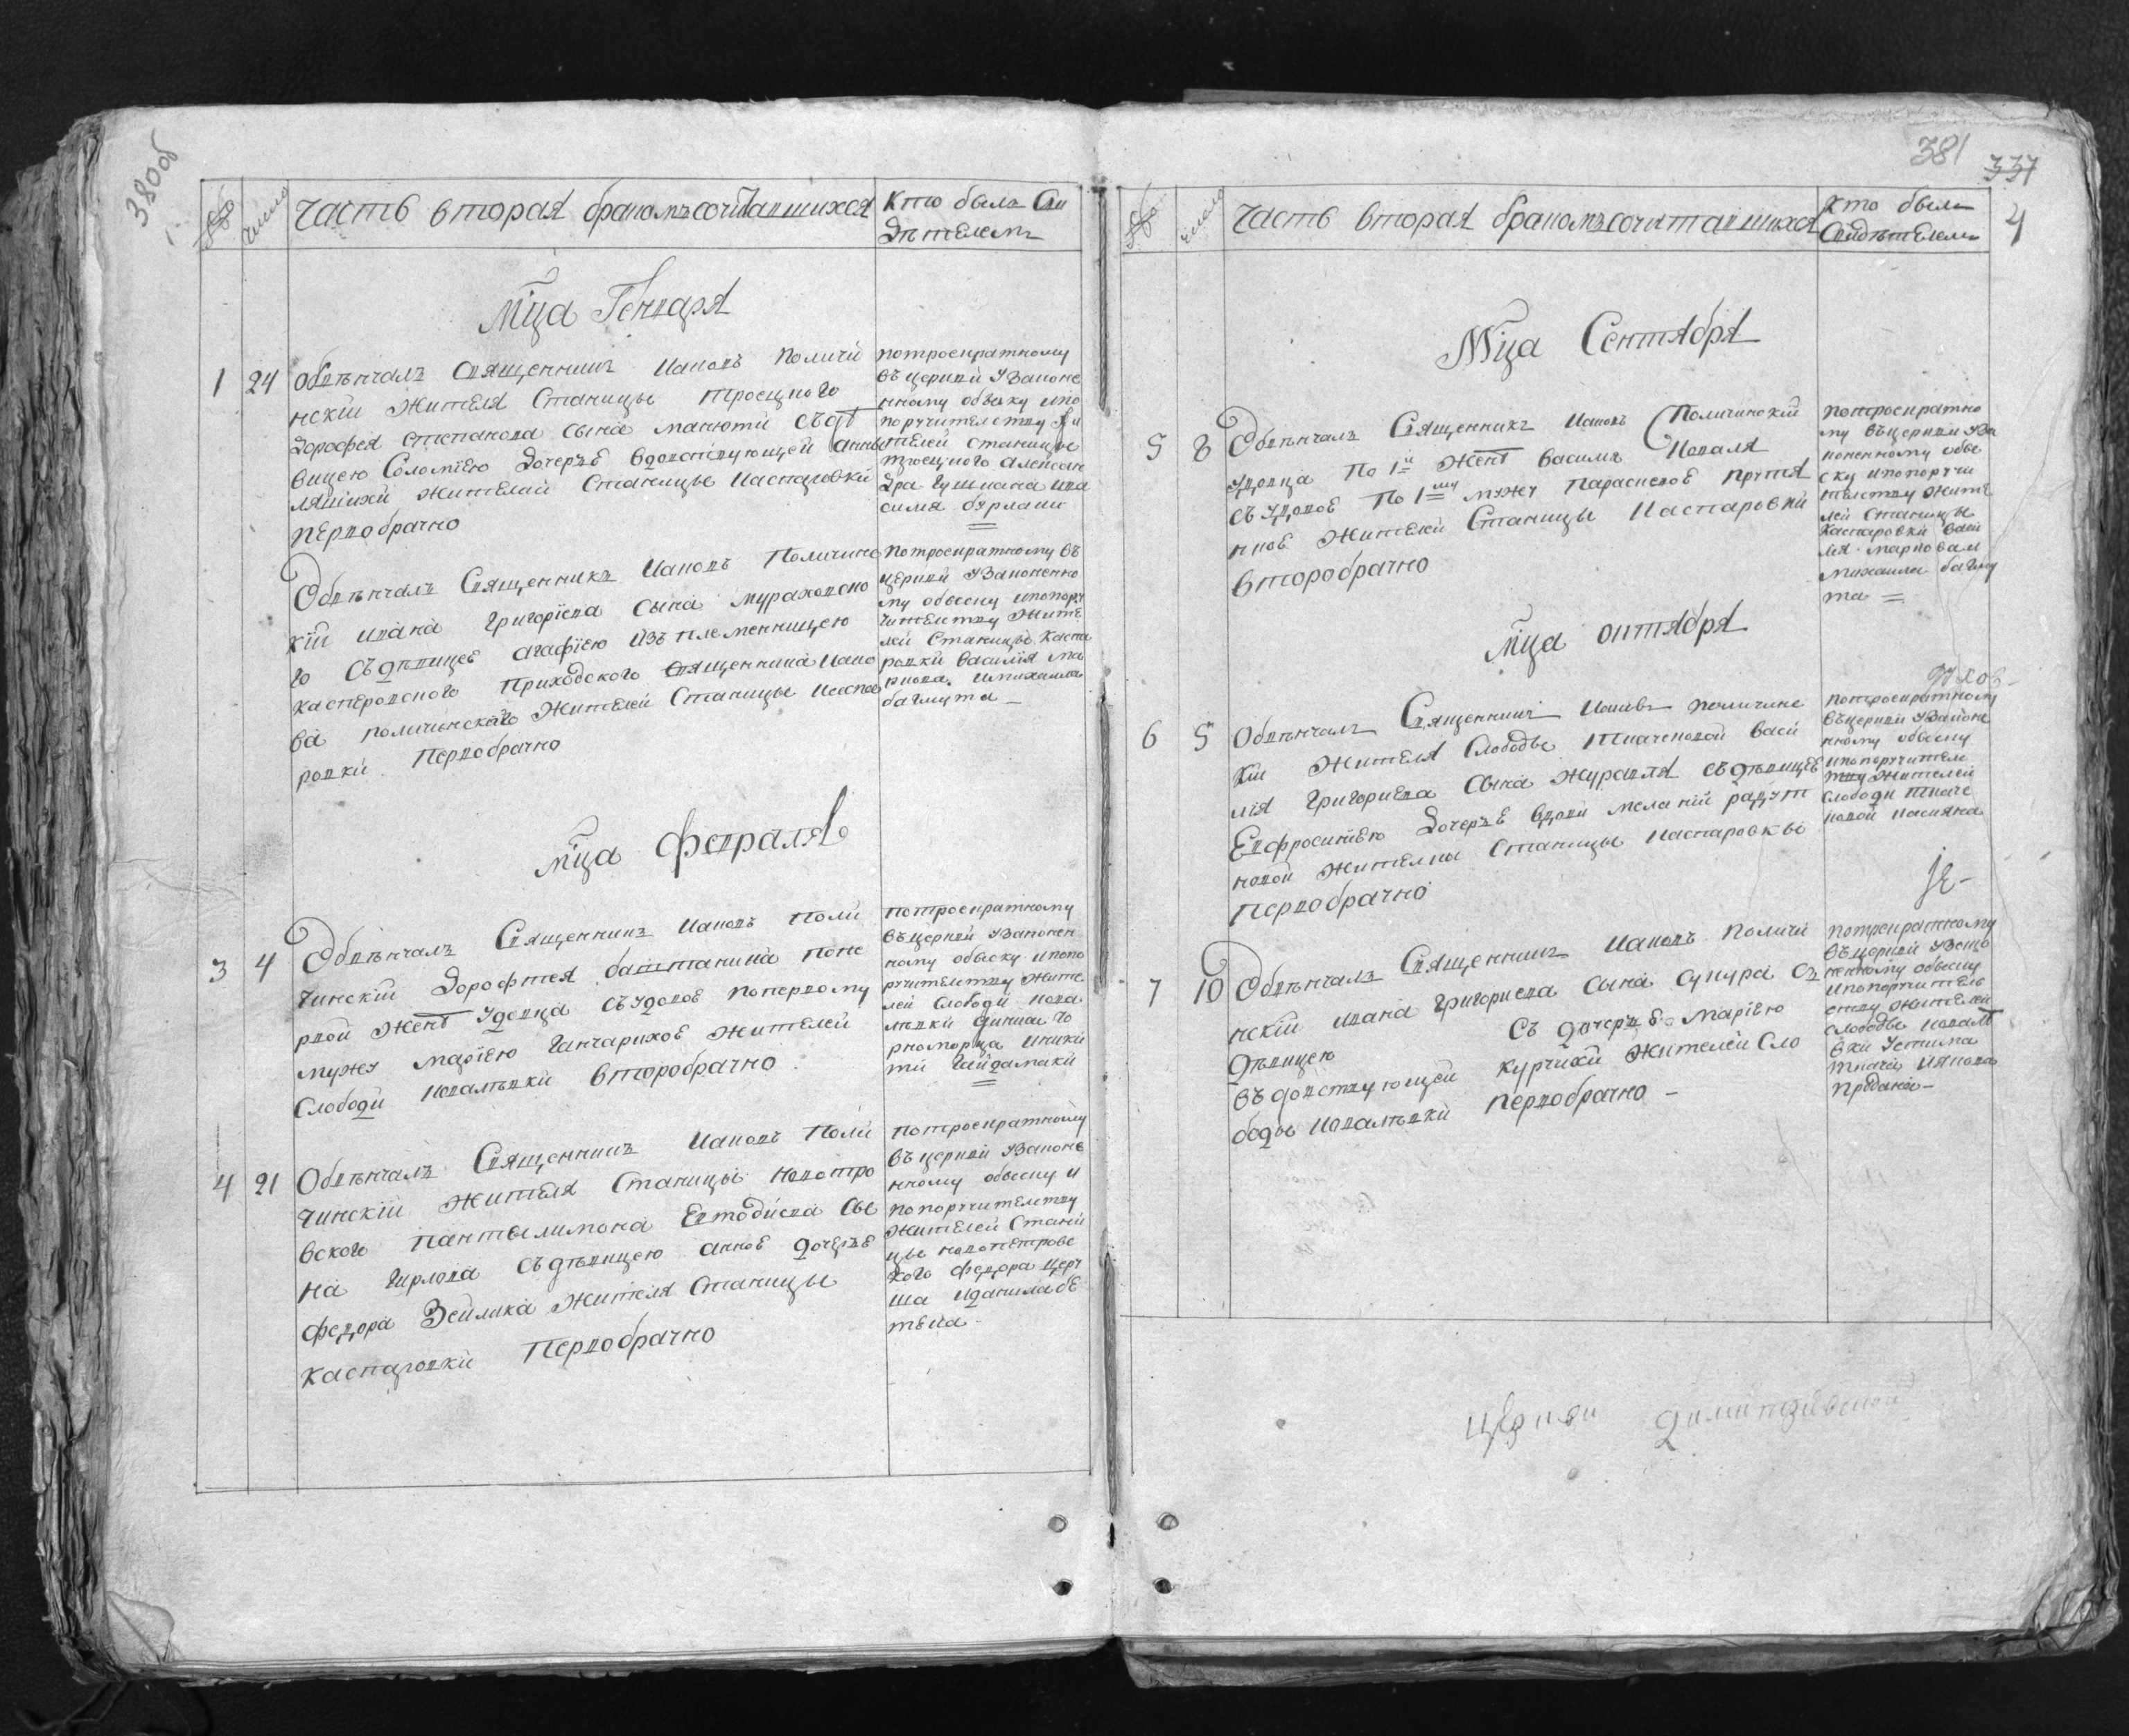 380об
№
число
Часть вторая бракомъ сочитавшихся
Кто былъ Сви
дѣтелемъ
Мца Генваря
1 24
обвѣнчалъ Священникъ Иаковъ Поличи
нскій Жителя Станицы Троецкого
Дорофея степанова сына манюти съ дѣ
вицею Соломіею Дочерью вдовствующей Анны
жителки Станицы Каспаровки
первобрачно
потроекратному
въ церкви Узаконе
нному обыску ипо
поручителству Жи
телей станицы
троецкого Алексан
дра ива
силя
Обвѣнчалъ Священникъ Иаковъ Поличинс
кій ивана григоріева сына мураховско
го съ дѣвицею агафіею изъ племенницею
каспѣровского приходского священника Иако
ва поличинского Жителей Станицы Каспа
ровки Первобрачно
Потроекратному въ
церкви Узаконенно
му обыску ипопору
чителству Жите
лей Станицы Каспа
ровки василія ма
ркова имихаила
багмута
мца Февраля
3 4
Обвѣнчалъ Священникъ Иаковъ Поли
чинскій Дорофтея баштаника попе
рвой женѣ удовца съ удовою поперво​му
мужу маріею Ганчарихою Жителей
Слободи ковалѣвки второбрачно
потроекратному
въ церкви Узаконен
ному обыску ипопо
ручителству Жите
лей Слободи кова
лѣвки
рноморца иники
ти Гайдамаки
4 21
Обвѣнчалъ Священникъ Иаковъ Поли
чинскій Жителя Станицы новопетро
вского пантылимона Евтодиева сы
на съ дѣвицею анною дочерью
федора Зеилика жителя Станицы
каспаровки Первобрачно
Потроекратному
въ церкви Узаконе
нному обыску и
попоручителству
Жителей Стани
цы новопетровс
кого федора
иданила
381
337
4
№
число
Часть вторая бракомъ сочитавшихся
Кто былъ
Свидѣтелемъ
Мца Сентября
5 8
Обвѣнчалъ Священникъ Иаковъ Поличинскій
удовца По 1й женѣ василя Коваля
съ удовою По 1му мужу Параскевою
Жителей Станицы Каспаровки
второбрачно
потроекратно
му въ церкви Уза
коненному обы
ску ипопоручи
телству Жите
лей Станицы
Каспаровки васи
ля маркова и
михаила багму
та
мца октября
6 5
Обвѣнчалъ Священникъ Иаковъ поличинс
кій Жителя Слободы Ткаченовой васи
лія Григориева сына Журавля съ дѣвицею
Евфросиніею дочерью вдови меланіи
новой жителки Станицы каспаровкы
Первобрачно
потроекратному
въ церкви Узаконе
нному обыску
ипопоручител
тву Жителей
Слободи ткаче
новой
7 10
Обвѣнчалъ Священникъ Иаковъ Поличи
нскій ивана григориева сына Сукура съ
дѣвицею съ дочерью маріею
вдовствующей курчихи Жителей Сло
боды ковалѣвки первобрачно
потрекратному
въ церкви Узако
ненному обыску
ипопоручитель
ству Жителей
слободы ковалѣ
вки Устима
ткача
церкви димитріевской